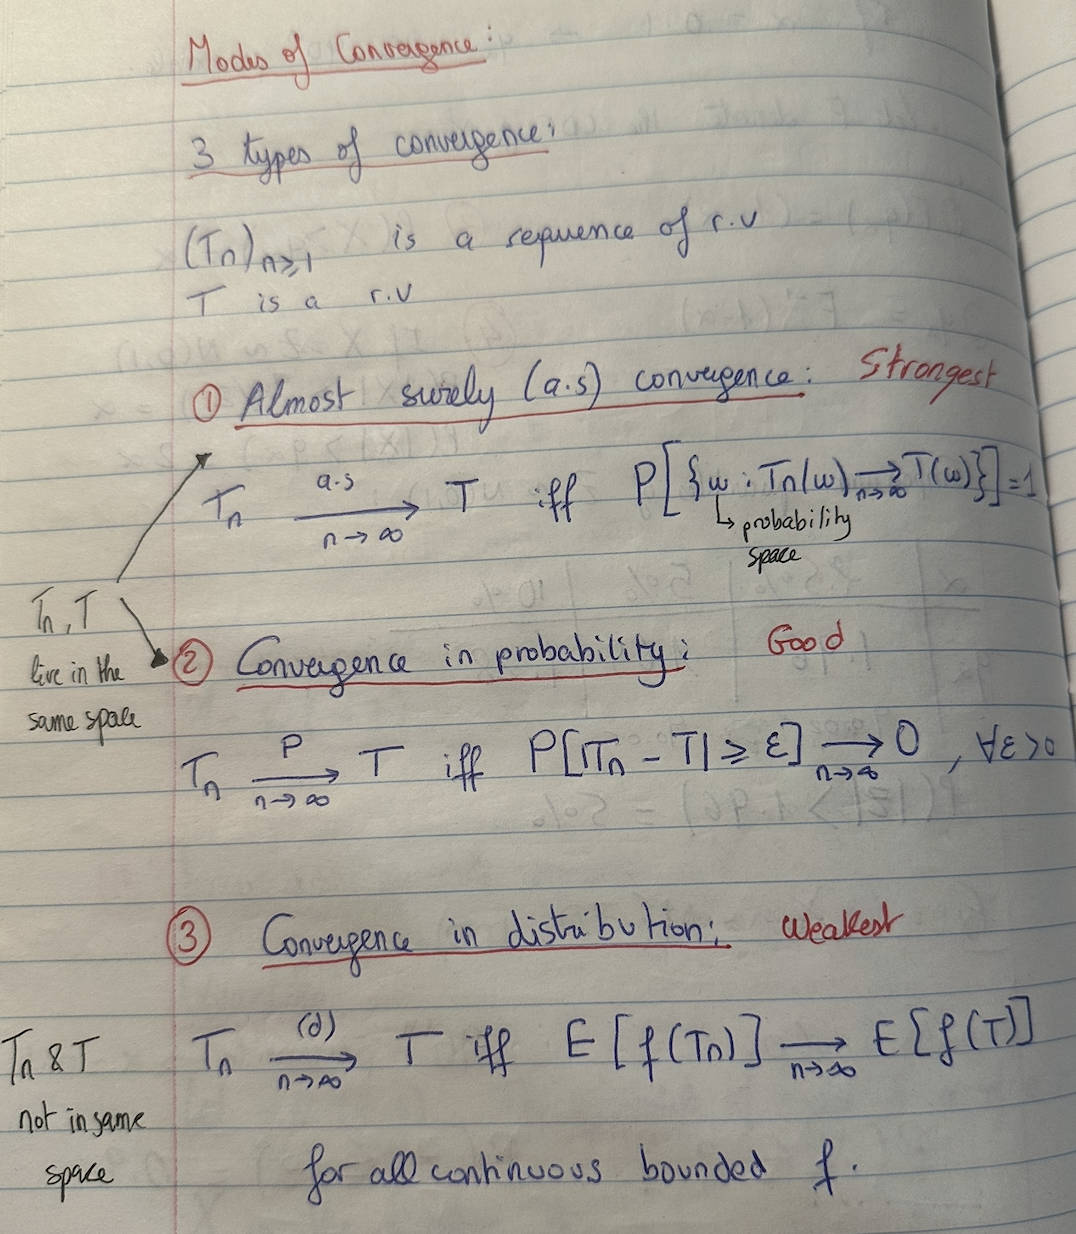 Modes of Convergence:
3 types of convergence:
(Tn)n≥1 is a sequence of r.v
T is a r.v
① Almost surely (a.s) convergence: Strongest
Tn a.s→n→∞ T iff P[{ω : Tn(ω) →n→∞ T(ω)}]=1
↳ probability
space
Tn, T
live in the
same space
② Convergence in probability: Good
Tn P→n→∞ T iff P[|Tn - T| ≥ ε] →n→∞ 0 , ∀ε>0
③ Convergence in distribution: Weakest
Tn (d)→n→∞ T iff E[f(Tn)] →n→∞ E[f(T)]
Tn & T
not in same
space
for all continuous bounded f.